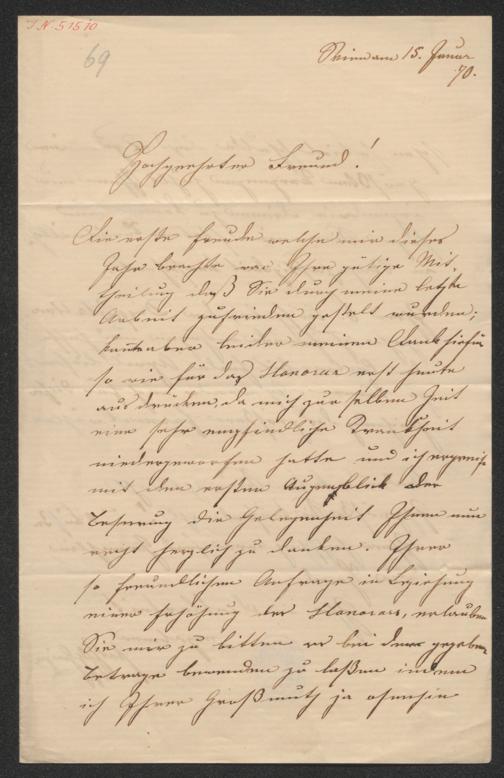 I.N. 51510
69
Wien am 15. Januar
70.
Hochgeehrter Freund!
Die erste Freude welche mir dieses
Jahr brachte war Ihre gütige Mit-
theilung daß Sie durch meine letzte
Arbeit zufrieden gestellt wurden;
kann aber leider meinen Dank hiefür
so wie für das Honorar erst heute
ausdrücken, da mich zur selben Zeit
eine sehr empfindliche Krankheit
niedergeworfen hatte und ich ergreife
mit dem ersten Augenblick der
Besserung die Gelegenheit Ihnen nun
recht herzlich zu danken. Ihrer
so freundlichen Anfrage in Beziehung
einer Erhöhung des Honorars, erlauben
Sie mir zu bitten es bei dem gegebenen
Betrage bewenden zu laßen indem
ich Ihrer Großmuth ja ohnehin